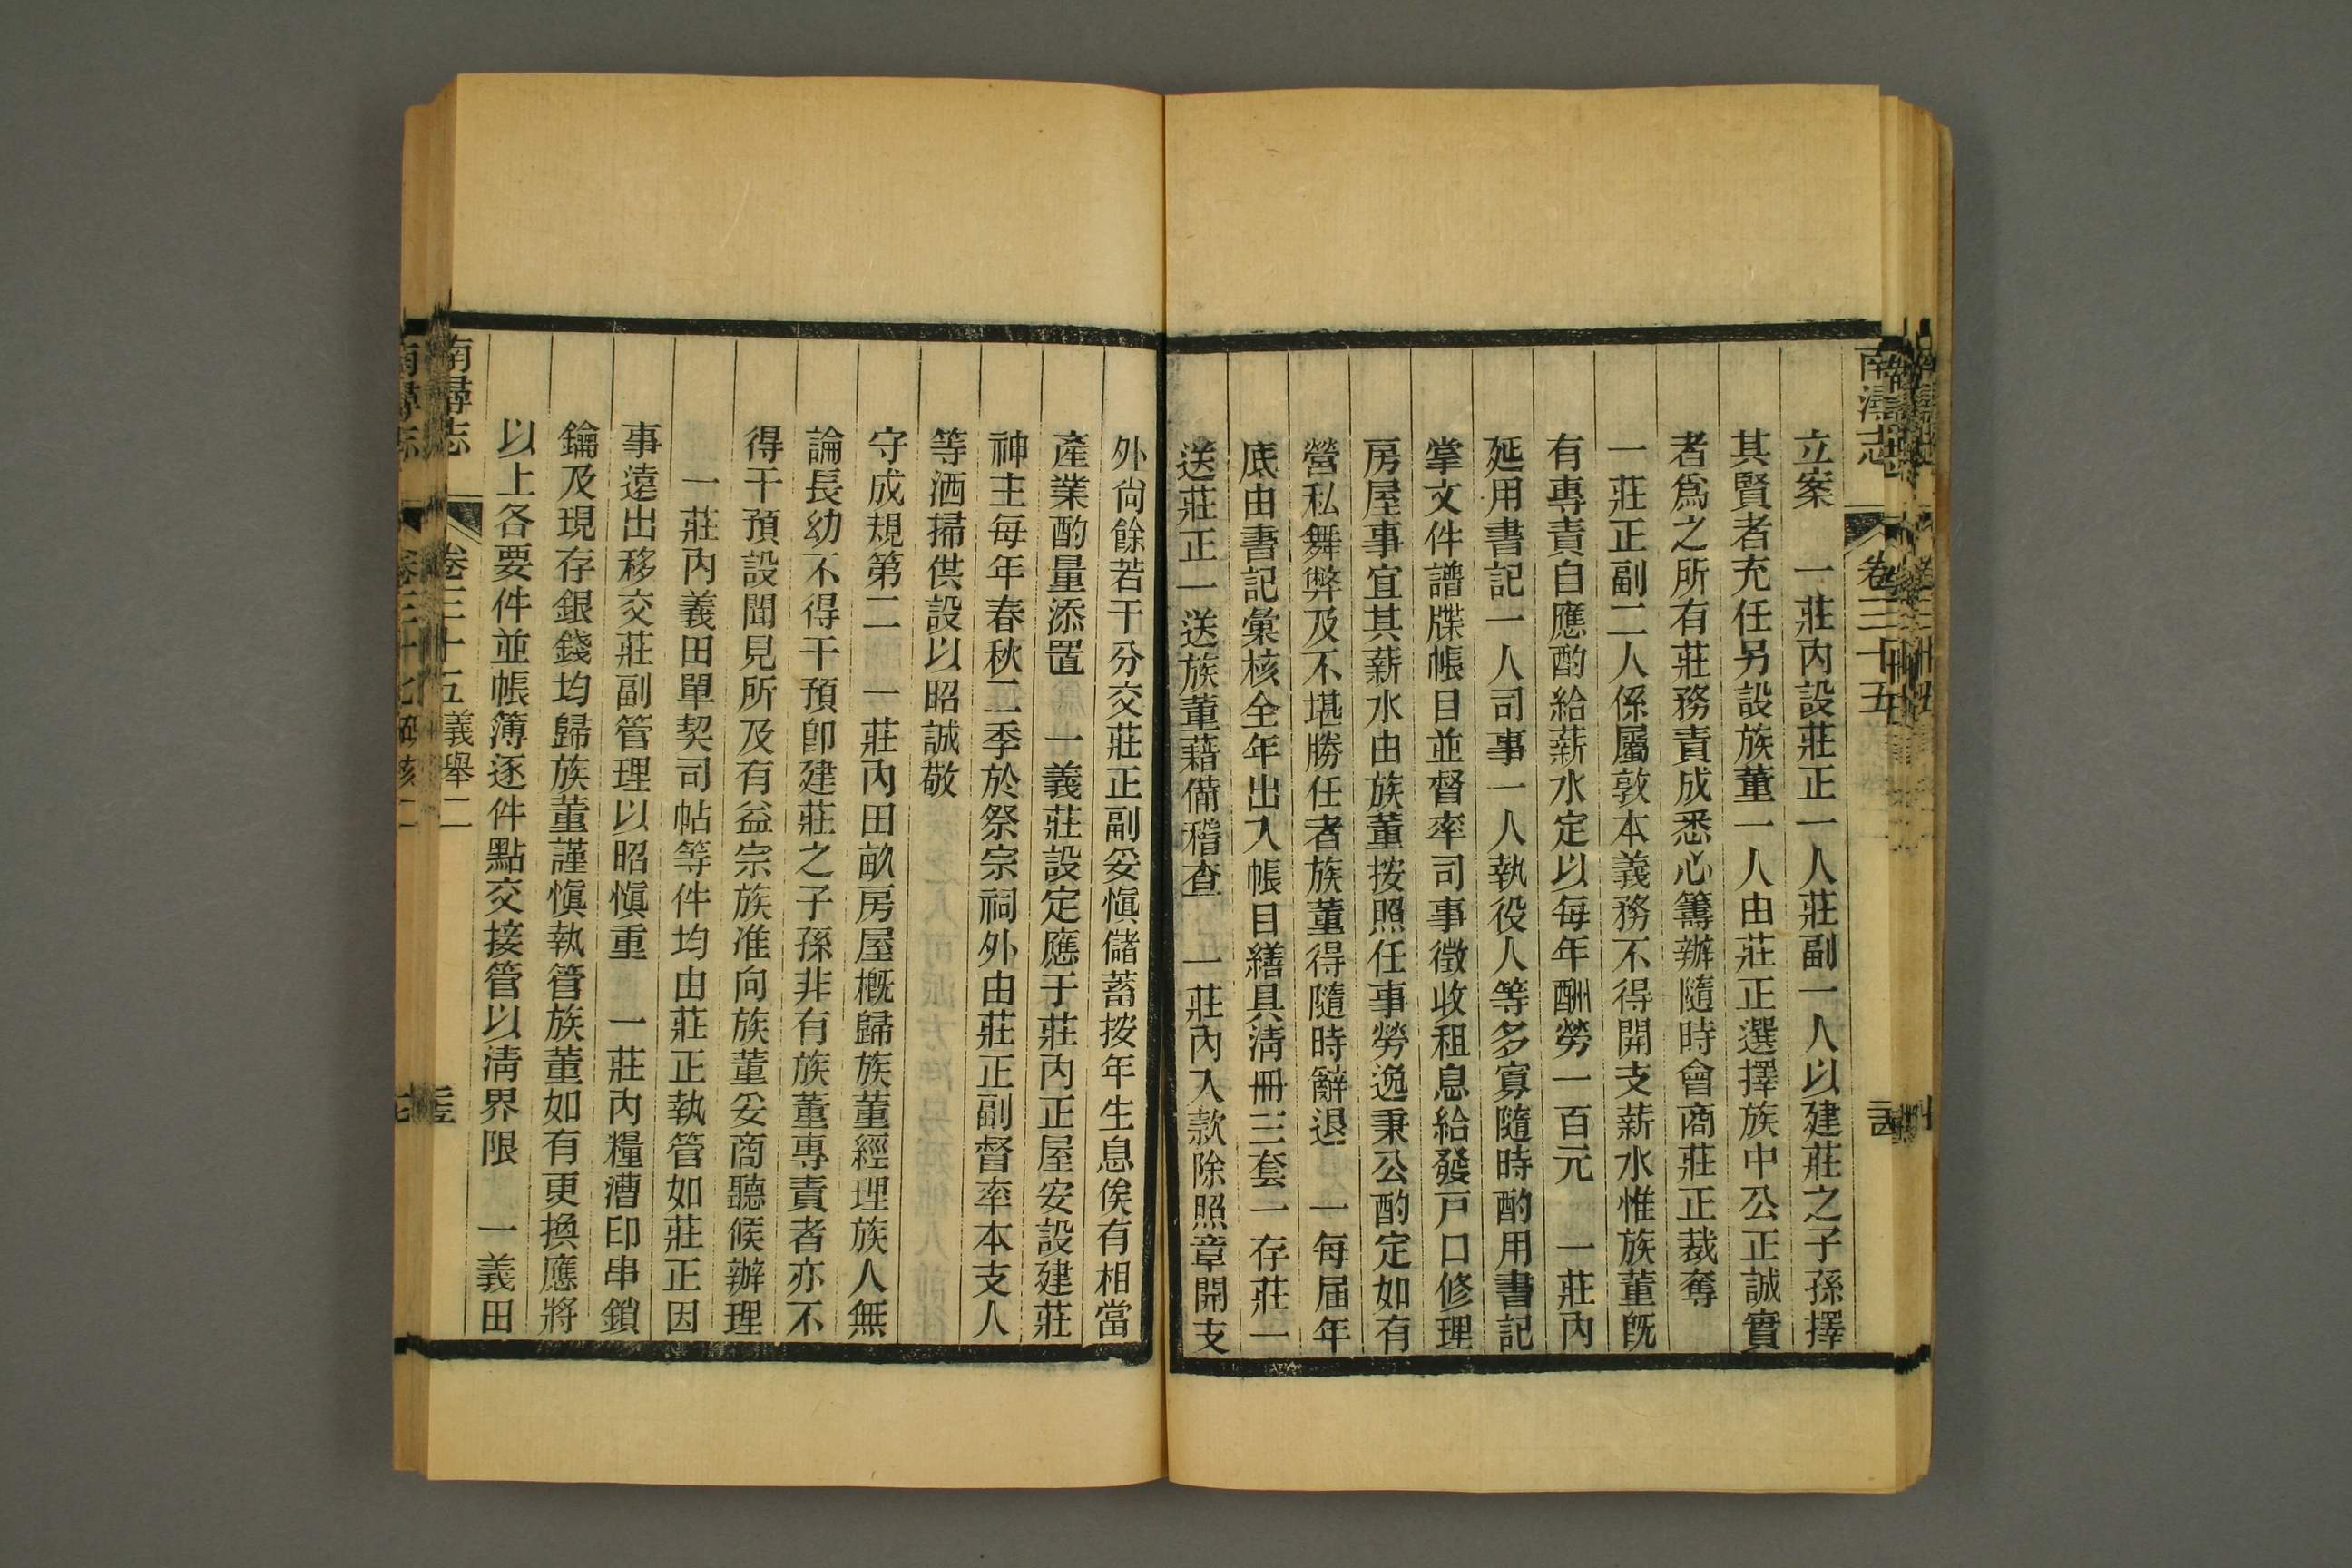 南潯志 卷三十五
立案 一莊內設莊正一人莊副一人以建莊之子孫擇
其賢者充任另設族董一人由莊正選擇族中公正誠實
者爲之所有莊務責成悉心籌辦隨時會商莊正裁奪
一莊正副二人係屬敦本義務不得開支薪水惟族董旣
有專責自應酌給薪水定以每年酬勞一百元 一莊內
延用書記一人司事一人執役人等多寡隨時酌用書記
掌文件譜牒帳目並督率司事徵收租息給發戶口修理
房屋事宜其薪水由族董按照任事勞逸秉公酌定如有
營私舞弊及不堪勝任者族董得隨時辭退 一每届年
底由書記彙核全年出入帳目繕具淸冊三套一存莊一
送莊正一送族董藉備稽查 一莊內入款除照章開支
外尙餘若干分交莊正副妥愼儲蓄按年生息俟有相當
產業酌量添置 一義莊設定應于莊內正屋安設建莊
神主每年春秋二季於祭宗祠外由莊正副督率本支人
等洒掃供設以昭誠敬
守成規第二 一莊內田畝房屋槪歸族董經理族人無
論長幼不得干預卽建莊之子孫非有族董專責者亦不
得干預設聞見所及有益宗族准向族董妥商聽候辦理
一莊內義田單契司帖等件均由莊正執管如莊正因
事遠出移交莊副管理以昭愼重 一莊內糧漕印串鎖
鑰及現存銀錢均歸族董謹愼執管族董如有更換應將
以上各要件並帳簿逐件點交接管以淸界限 一義田
南潯志 卷三十五 義舉二